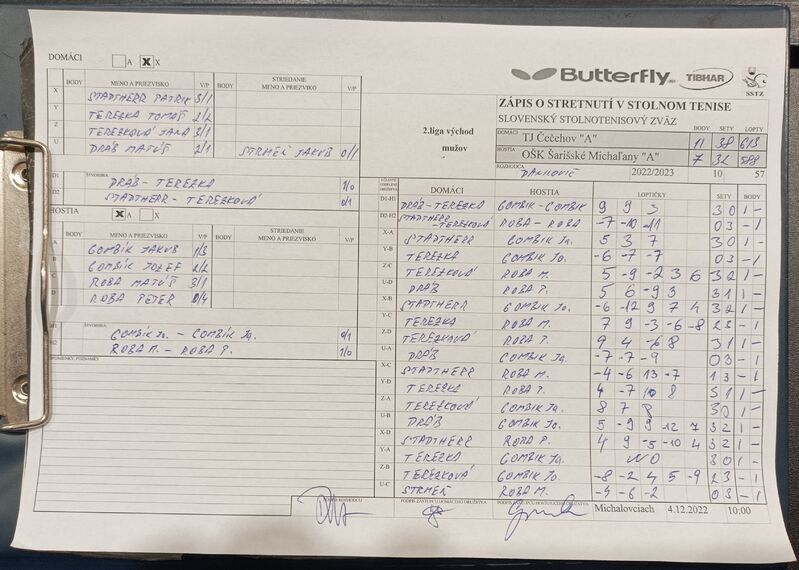 DOMÁCI A X X
Butterfly TIBHAR
SSTZ
BODY MENO A PRIEZVISKO V/P BODY STRIEDANIE MENO A PRIEZVISKO V/P
X STADTHERR PATRIK 3/1
Y TEREZKA TOMÁŠ 2/2
Z TEREZKOVÁ JANA 3/1
U DRÁB MATÚŠ 2/1 STRMEŇ JAKUB 0/1
2.liga východ
mužov
ZÁPIS O STRETNUTÍ V STOLNOM TENISE
SLOVENSKÝ STOLNOTENISOVÝ ZVÄZ
DOMÁCI BODY SETY LOPTY
TJ Čečehov "A" 11 38 613
HOSTIA
OŠK Šarišské Michaľany "A" 7 32 588
ROZHODCA
2022/2023 10 57
D1 ŠTVORHRA DRÁB - TEREZKA 1/0
D2 STADTHERR - TEREZKOVÁ 0/1
HOSTIA A X
BODY MENO A PRIEZVISKO V/P BODY STRIEDANIE MENO A PRIEZVISKO V/P
A GOMBÍK JAKUB 1/3
B GOMBÍK JOZEF 2/2
C ROBA MATÚŠ 3/1
D ROBA PETER 0/4
H1 ŠTVORHRA GOMBÍK Jo. - GOMBÍK Ja. 0/1
H2 ROBA M. - ROBA P. 1/0
PRIPOMIENKY, POZNÁMKY
DOMÁCI HOSTIA LOPTIČKY SETY BODY
D1-H1 DRÁB - TEREZKA GOMBIK - GOMBIK 9 9 3 3 0 1 -
D2-H2 STADTHERR - TEREZKOVÁ ROBA - ROBA -7 -10 -11 0 3 - 1
X-A STADTHERR GOMBIK Ja. 5 3 7 3 0 1 -
Y-B TEREZKA GOMBIK Jo. -6 -7 -7 0 3 - 1
Z-C TEREZKOVÁ ROBA M. 5 -9 -2 3 6 3 2 1 -
U-D DRÁB ROBA P. 5 6 -9 3 3 1 1 -
X-B STADTHERR GOMBIK Jo. -6 -12 9 7 4 3 2 1 -
Y-C TEREZKA ROBA M. 7 9 -3 -6 -8 2 3 - 1
Z-D TEREZKOVÁ ROBA P. 9 4 -6 8 3 1 1 -
U-A DRÁB GOMBIK Ja. -7 -7 -9 0 3 - 1
X-C STADTHERR ROBA M. -4 -6 13 -7 1 3 - 1
Y-D TEREZKA ROBA P. 4 -7 10 8 3 1 1 -
Z-A TEREZKOVÁ GOMBIK Ja. 8 7 8 3 0 1 -
U-B DRÁB GOMBIK Jo. 5 -9 9 -12 7 3 2 1 -
X-D STADTHERR ROBA P. 4 9 -5 -10 4 3 2 1 -
Y-A TEREZKA GOMBIK Ja. WO 3 0 1 -
Z-B TEREZKOVÁ GOMBIK Jo. -8 -2 4 5 -9 2 3 - 1
U-C STRMEŇ ROBA M. -4 -6 -2 0 3 - 1
PODPIS ROZHODCU PODPIS ZÁSTUPCU DOMÁCEHO DRUŽSTVA PODPIS ZÁSTUPCU HOSŤUJÚCEHO DRUŽSTVA Michalovciach 4.12.2022 10:00